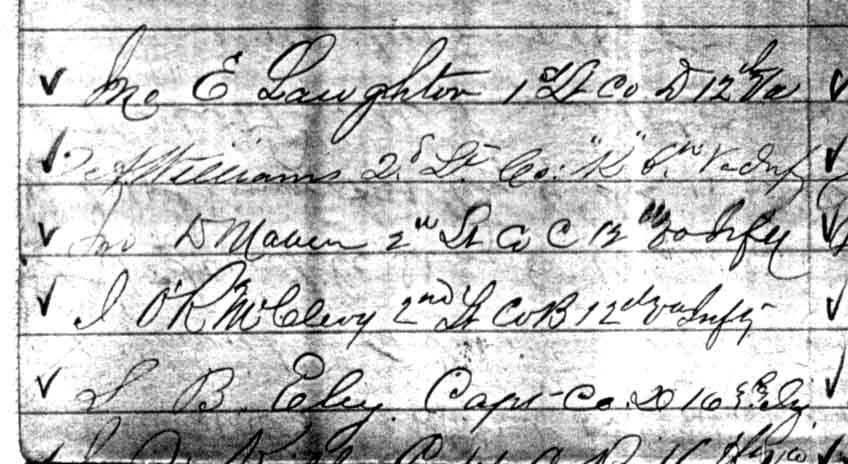 Jno E Laughton 1st Lt Co D 12th Va
Williams 2d Lt Co. "K" 6th Va Infy
Jno D 2nd Lt Co C 12th Va Infy
J O'R McClevy 2nd Lt Co B 12th Va Infy
L B. Eley Capt Co. D 16